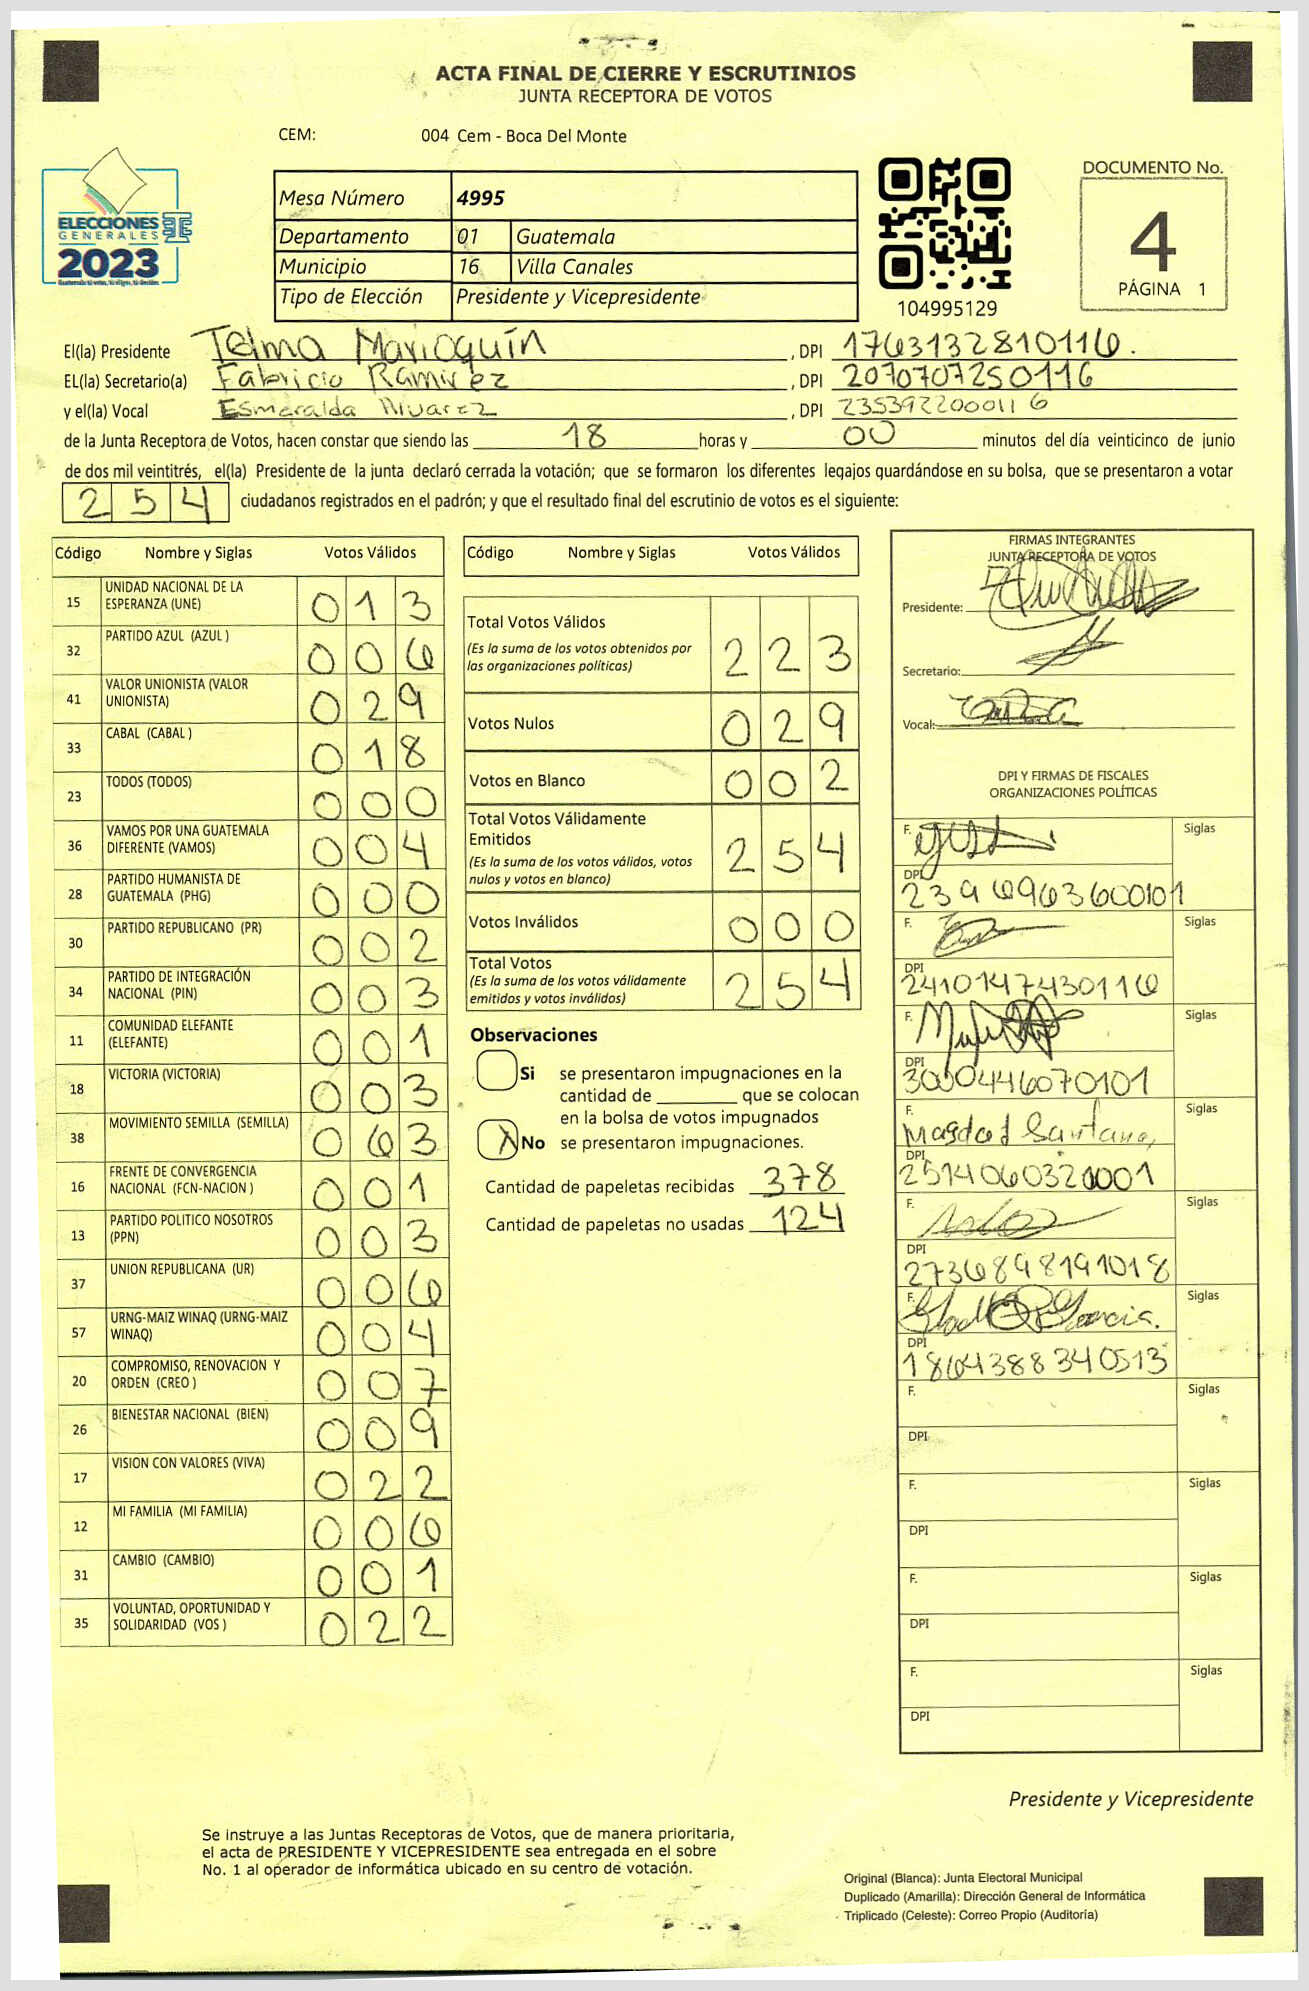 ACTA FINAL DE CIERRE Y ESCRUTINIOS
JUNTA RECEPTORA DE VOTOS
CEM: 004 Cem - Boca Del Monte
ELECCIONES
GENERALES
2023
Mesa Número 4995
Departamento 01 Guatemala
Municipio 16 Villa Canales
Tipo de Elección Presidente y Vicepresidente
104995129
DOCUMENTO No.
4
PÁGINA 1
El(la) Presidente Telma Marroquín , DPI 1763132810116.
EL(la) Secretario(a) Fabricio Ramirez , DPI 2070707250116
y el(la) Vocal Esmeralda Alvarez , DPI 2353922000116
de la Junta Receptora de Votos, hacen constar que siendo las 18 horas y 00 minutos del día veinticinco de junio
de dos mil veintitrés, el(la) Presidente de la junta declaró cerrada la votación; que se formaron los diferentes legajos guardándose en su bolsa, que se presentaron a votar
254 ciudadanos registrados en el padrón; y que el resultado final del escrutinio de votos es el siguiente:
Código Nombre y Siglas Votos Válidos
15 UNIDAD NACIONAL DE LA
ESPERANZA (UNE) 013
32 PARTIDO AZUL (AZUL ) 006
41 VALOR UNIONISTA (VALOR
UNIONISTA) 029
33 CABAL (CABAL ) 018
23 TODOS (TODOS) 000
36 VAMOS POR UNA GUATEMALA
DIFERENTE (VAMOS) 004
28 PARTIDO HUMANISTA DE
GUATEMALA (PHG) 000
30 PARTIDO REPUBLICANO (PR) 002
34 PARTIDO DE INTEGRACIÓN
NACIONAL (PIN) 003
11 COMUNIDAD ELEFANTE
(ELEFANTE) 001
18 VICTORIA (VICTORIA) 003
38 MOVIMIENTO SEMILLA (SEMILLA) 063
16 FRENTE DE CONVERGENCIA
NACIONAL (FCN-NACION ) 001
13 PARTIDO POLITICO NOSOTROS
(PPN) 003
37 UNION REPUBLICANA (UR) 006
57 URNG-MAIZ WINAQ (URNG-MAIZ
WINAQ) 004
20 COMPROMISO, RENOVACION Y
ORDEN (CREO ) 007
26 BIENESTAR NACIONAL (BIEN) 009
17 VISION CON VALORES (VIVA) 022
12 MI FAMILIA (MI FAMILIA) 006
31 CAMBIO (CAMBIO) 001
35 VOLUNTAD, OPORTUNIDAD Y
SOLIDARIDAD (VOS ) 022
Código Nombre y Siglas Votos Válidos
Total Votos Válidos
(Es la suma de los votos obtenidos por
las organizaciones políticas) 223
Votos Nulos 029
Votos en Blanco 002
Total Votos Válidamente
Emitidos
(Es la suma de los votos válidos, votos
nulos y votos en blanco) 254
Votos Inválidos 000
Total Votos
(Es la suma de los votos válidamente
emitidos y votos inválidos) 254
Observaciones
Si se presentaron impugnaciones en la
cantidad de ________ que se colocan
en la bolsa de votos impugnados
X No se presentaron impugnaciones.
Cantidad de papeletas recibidas 378
Cantidad de papeletas no usadas 124
FIRMAS INTEGRANTES
JUNTA RECEPTORA DE VOTOS
Presidente:
Secretario:
Vocal:
DPI Y FIRMAS DE FISCALES
ORGANIZACIONES POLÍTICAS
F. Siglas
DPI
2396963600101
F. Siglas
DPI
2410147430116
F. Siglas
DPI
3000446070101
F. Siglas
DPI
2514060320001
F. Siglas
DPI
2736898191018
F. Garcia. Siglas
DPI
1864388340513
F. Siglas
DPI
F. Siglas
DPI
F. Siglas
DPI
F. Siglas
DPI
Presidente y Vicepresidente
Se instruye a las Juntas Receptoras de Votos, que de manera prioritaria,
el acta de PRESIDENTE Y VICEPRESIDENTE sea entregada en el sobre
No. 1 al operador de informática ubicado en su centro de votación.
Original (Blanca): Junta Electoral Municipal
Duplicado (Amarilla): Dirección General de Informática
Triplicado (Celeste): Correo Propio (Auditoría)